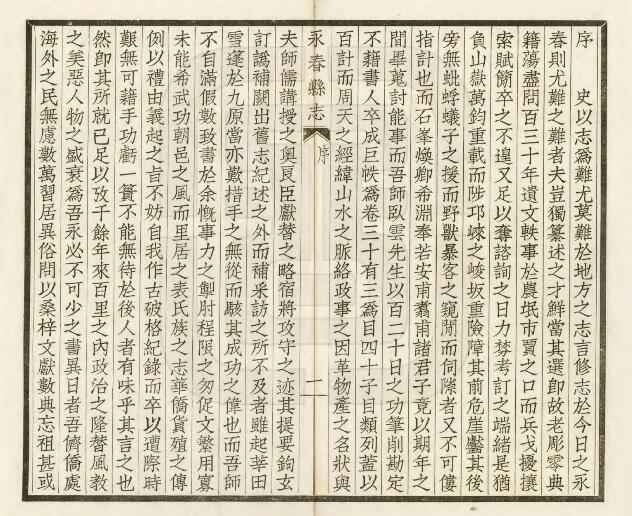 序
史以志爲難尤莫難於地方之志言修志於今日之永
春則尤難之難者夫豈獨纂述之才鮮當其選卽故老彫零典
籍蕩盡問百三十年遺文軼事於農氓市賈之口而兵戈擾攘
索賦簡卒之不遑又足以奪諮詢之日力棼考訂之端緒是猶
負山嶽萬鈞重載而陟邛崍之峻坂重險障其前危崖齾其後
旁無蚍蜉蟻子之援而野獸暴客之窺閒而伺隙者又不可僂
指計也而石峯煥卿希淵奉若安甫翥甫諸君子竟以期年之
間畢蒐討能事而吾師臥雲先生以百二十日之功筆削勘定
不藉書人卒成巨帙爲卷三十有三爲目四十子目類列蓋以
百計而周天之經緯山水之脈絡政事之因革物產之名狀與
永春縣志
序
一
夫師儒講授之奧良臣獻替之略宿將攻守之迹其提要鉤玄
訂譌補闕出舊志紀述之外而補采訪之所不及者雖起莘田
雪逢於九原當亦歎措手之無從而駭其成功之偉也而吾師
不自滿假數致書於余慨事力之掣肘程限之匆促文繁用寡
未能希武功朝邑之風而里居之表氏族之志華僑貨殖之傳
例以禮由義起之旨不妨自我作古破格紀錄而卒以遭際時
艱無可藉手功虧一簣不能無待於後人者有味乎其言之也
然卽其所就已足以攷千餘年來百里之內政治之隆替風教
之美惡人物之盛衰爲吾永必不可少之書異日者吾儕僑處
海外之民無慮數萬習居異俗問以桑梓文獻數典忘祖甚或